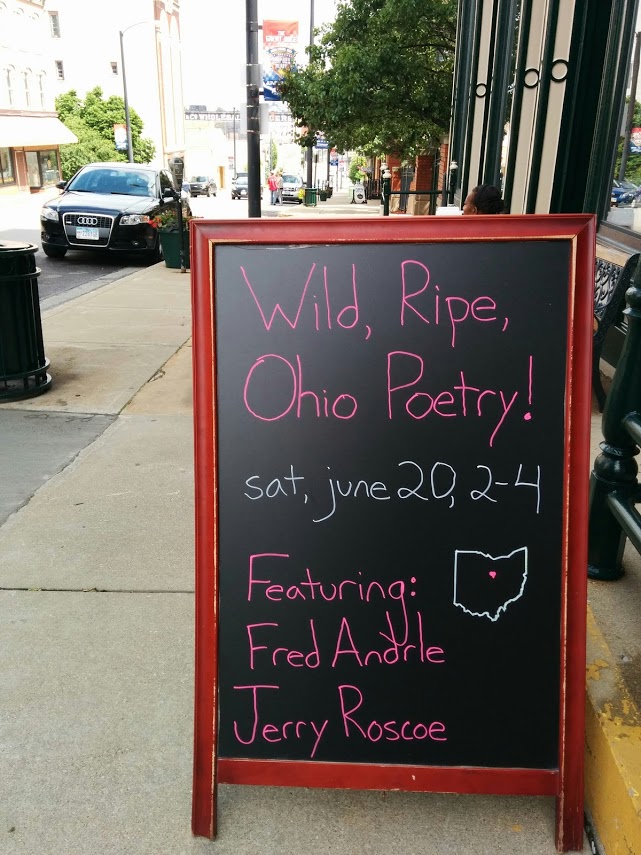 Wild, Ripe,
Ohio Poetry!
sat, june 20, 2-4
Featuring:
Fred Andrle
Jerry Roscoe